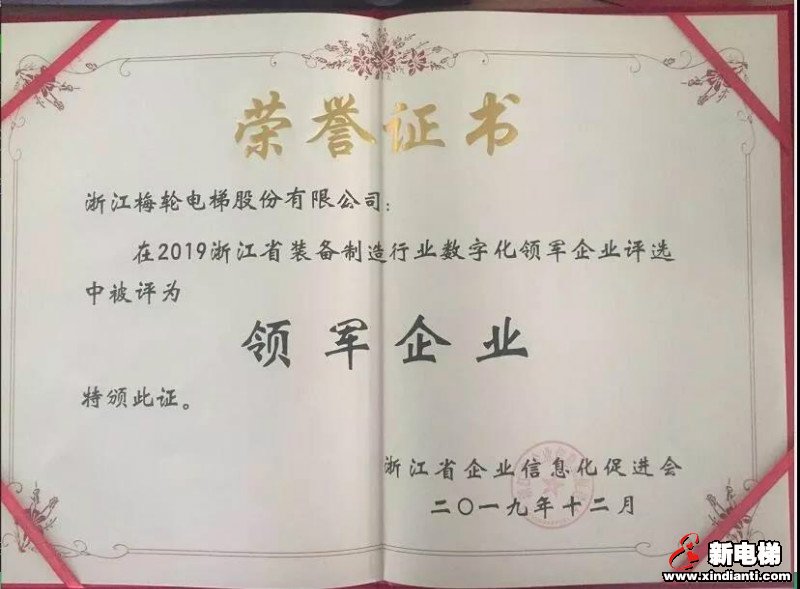 荣誉证书
浙江梅轮电梯股份有限公司：
在2019浙江省装备制造行业数字化领军企业评选
中被评为
领军企业
特颁此证。
浙江省企业信息化促进会
二〇一九年十二月
新电梯
www.xindianti.com